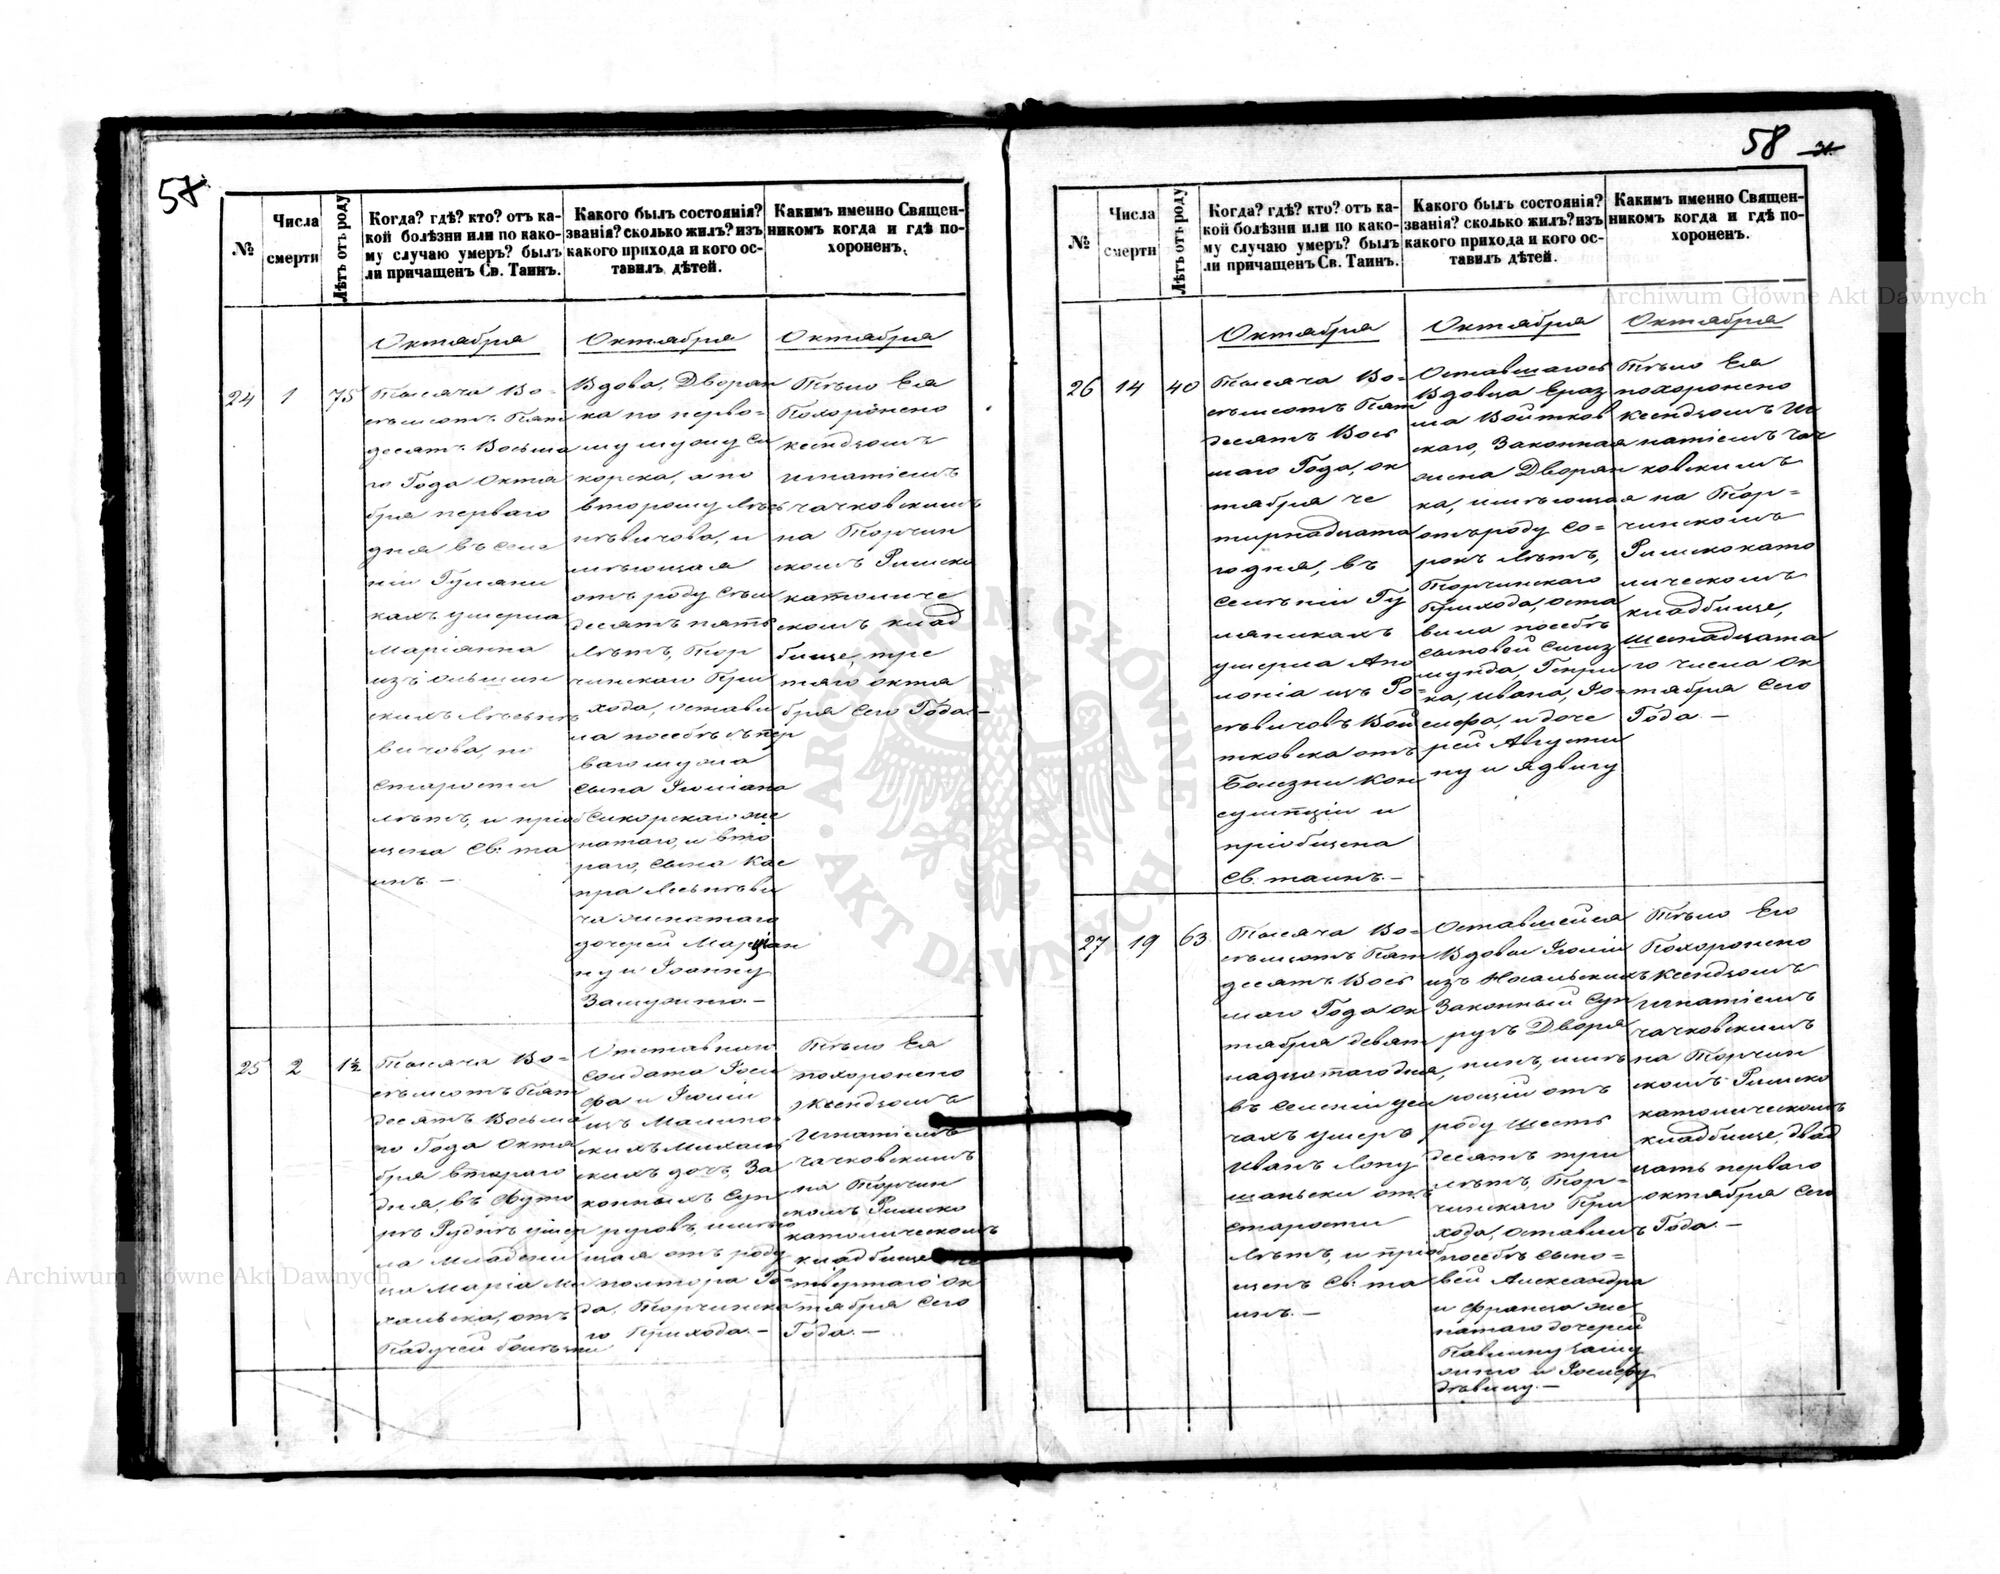 58
№
Числа
смерти
Лѣтъ отъ роду
Когда? гдѣ? кто? отъ ка-
кой болѣзни или по како-
му случаю умеръ? былъ
ли причащенъ Св. Таинъ.
Какого былъ состоянія?
званія? сколько жилъ? изъ
какого прихода и кого ос-
тавилъ дѣтей.
Какимъ именно Священ-
никомъ когда и гдѣ по-
хороненъ.
24
1
75
Октября
Тысяча Во-
семьсотъ Пять
десятъ Восьма
го Года Октя
бря перваго
дня въ селе
ніи Гуляни
кахъ умерла
Маріанна
изъ
вичова, по
старости
лѣтъ, и пріоб
щена Св. та
инъ. —
Октября
Вдова, Дворян
ка по перво-
му мужу Си
корска, а по
второму
и
мѣющая
отъ роду семь
десятъ пять
лѣтъ, Тор
чинскаго При
хода, остави
ла посебѣ съ пер
ваго мужа
сына Юліана
Сикорскаго же
натаго, и вто
раго, сына Кас
пра
ча женатаго
дочерей Маріан
ну и Іоанну
Замужніе. —
Октября
Тѣло Ея
Похоронено
ксендзомъ
Игнатіемъ
Чачковскимъ
на Торчин
скомъ Римско
католиче
скомъ клад
бище, тре
тяго октя
бря Сего Года. —
25
2
1½
Тысяча Во-
семьсотъ Пять
десятъ Восьма
го Года Октя
бря втораго
дня, въ Футо
рѣ Рудкѣ умер
ла Младени
ца Марія Ми
хальска, отъ
Падучей болѣзни
Отставнаго
Солдата Іоси
фа и Юліи
изъ Малинов
скихъ Михаль
скихъ дочь, За
конныхъ Суп
руговъ, имѣю
щая отъ роду
полтора Го-
да, Торчинска
го Прихода. —
Тѣло Ея
похоронено
Ксендзомъ
Игнатіемъ
Чачковскимъ
на Торчин
скомъ Римско
католическомъ
кладбище че
твертаго Ок
тября Сего
Года. —
58
№
Числа
смерти
Лѣтъ отъ роду
Когда? гдѣ? кто? отъ ка-
кой болѣзни или по како-
му случаю умеръ? былъ
ли причащенъ Св. Таинъ.
Какого былъ состоянія?
званія? сколько жилъ? изъ
какого прихода и кого ос-
тавилъ дѣтей.
Какимъ именно Священ-
никомъ когда и гдѣ по-
хороненъ.
26
14
40
Октября
Тысяча Во-
семьсотъ Пять
десятъ Вось
маго Года, ок
тября че
тырнадцата
го дня, въ
Селеніи Гу
ляникахъ
умерла Апо
лонія изъ
Вой
тковска отъ
Болезни Кон
сумпціи и
пріобщена
Св. таинъ. —
Октября
Оставшагося
Вдовца Ераз
ма Войтков
скаго, Законная
жена Дворян
ка, имѣющая
отъ роду со-
рокъ лѣтъ,
Торчинскаго
Прихода, оста
вила посебѣ
сыновей Сигиз
мунда, Генри
ка, Ивана, Іо-
сифа, и доче
рей Августи
ну и Ядвигу
Октября
Тѣло Ея
похоронено
ксендзомъ Иг
натіемъ Чач
ковскимъ
на Тор-
чинскомъ
Римскокато
лическомъ
кладбище,
шестнадцата
го числа Ок
тября Сего
Года. —
27
19
63
Тысяча Во-
семьсотъ Пять
десятъ Вось
маго Года Ок
тября девят
надцатаго дня,
въ Селеніи
чахъ умеръ
Иванъ Лопу
шаньски отъ
старости
лѣтъ, и пріоб
щенъ Св. та
инъ. —
Оставшейся
Вдовы Юліи
изъ Носальскихъ
Законный Суп
ругъ Дворя
нинъ, имѣ
ющій отъ
роду шесть
десятъ три
лѣтъ, Тор-
чинскаго При
хода, оставилъ
посебѣ сыно-
вей Александра
и Франца же
натаго дочерей
Павлину заму
жнюю и Іосифу
дѣвицу. —
Тѣло Его
Похоронено
Ксендзомъ
Игнатіемъ
Чачковскимъ
на Торчин
скомъ Римско
католическомъ
кладбище, двад
цать перваго
октября Сего
Года. —
Archiwum Główne Akt Dawnych
Archiwum Główne Akt Dawnych
ARCHIWUM GŁÓWNE · AKT DAWNYCH ·